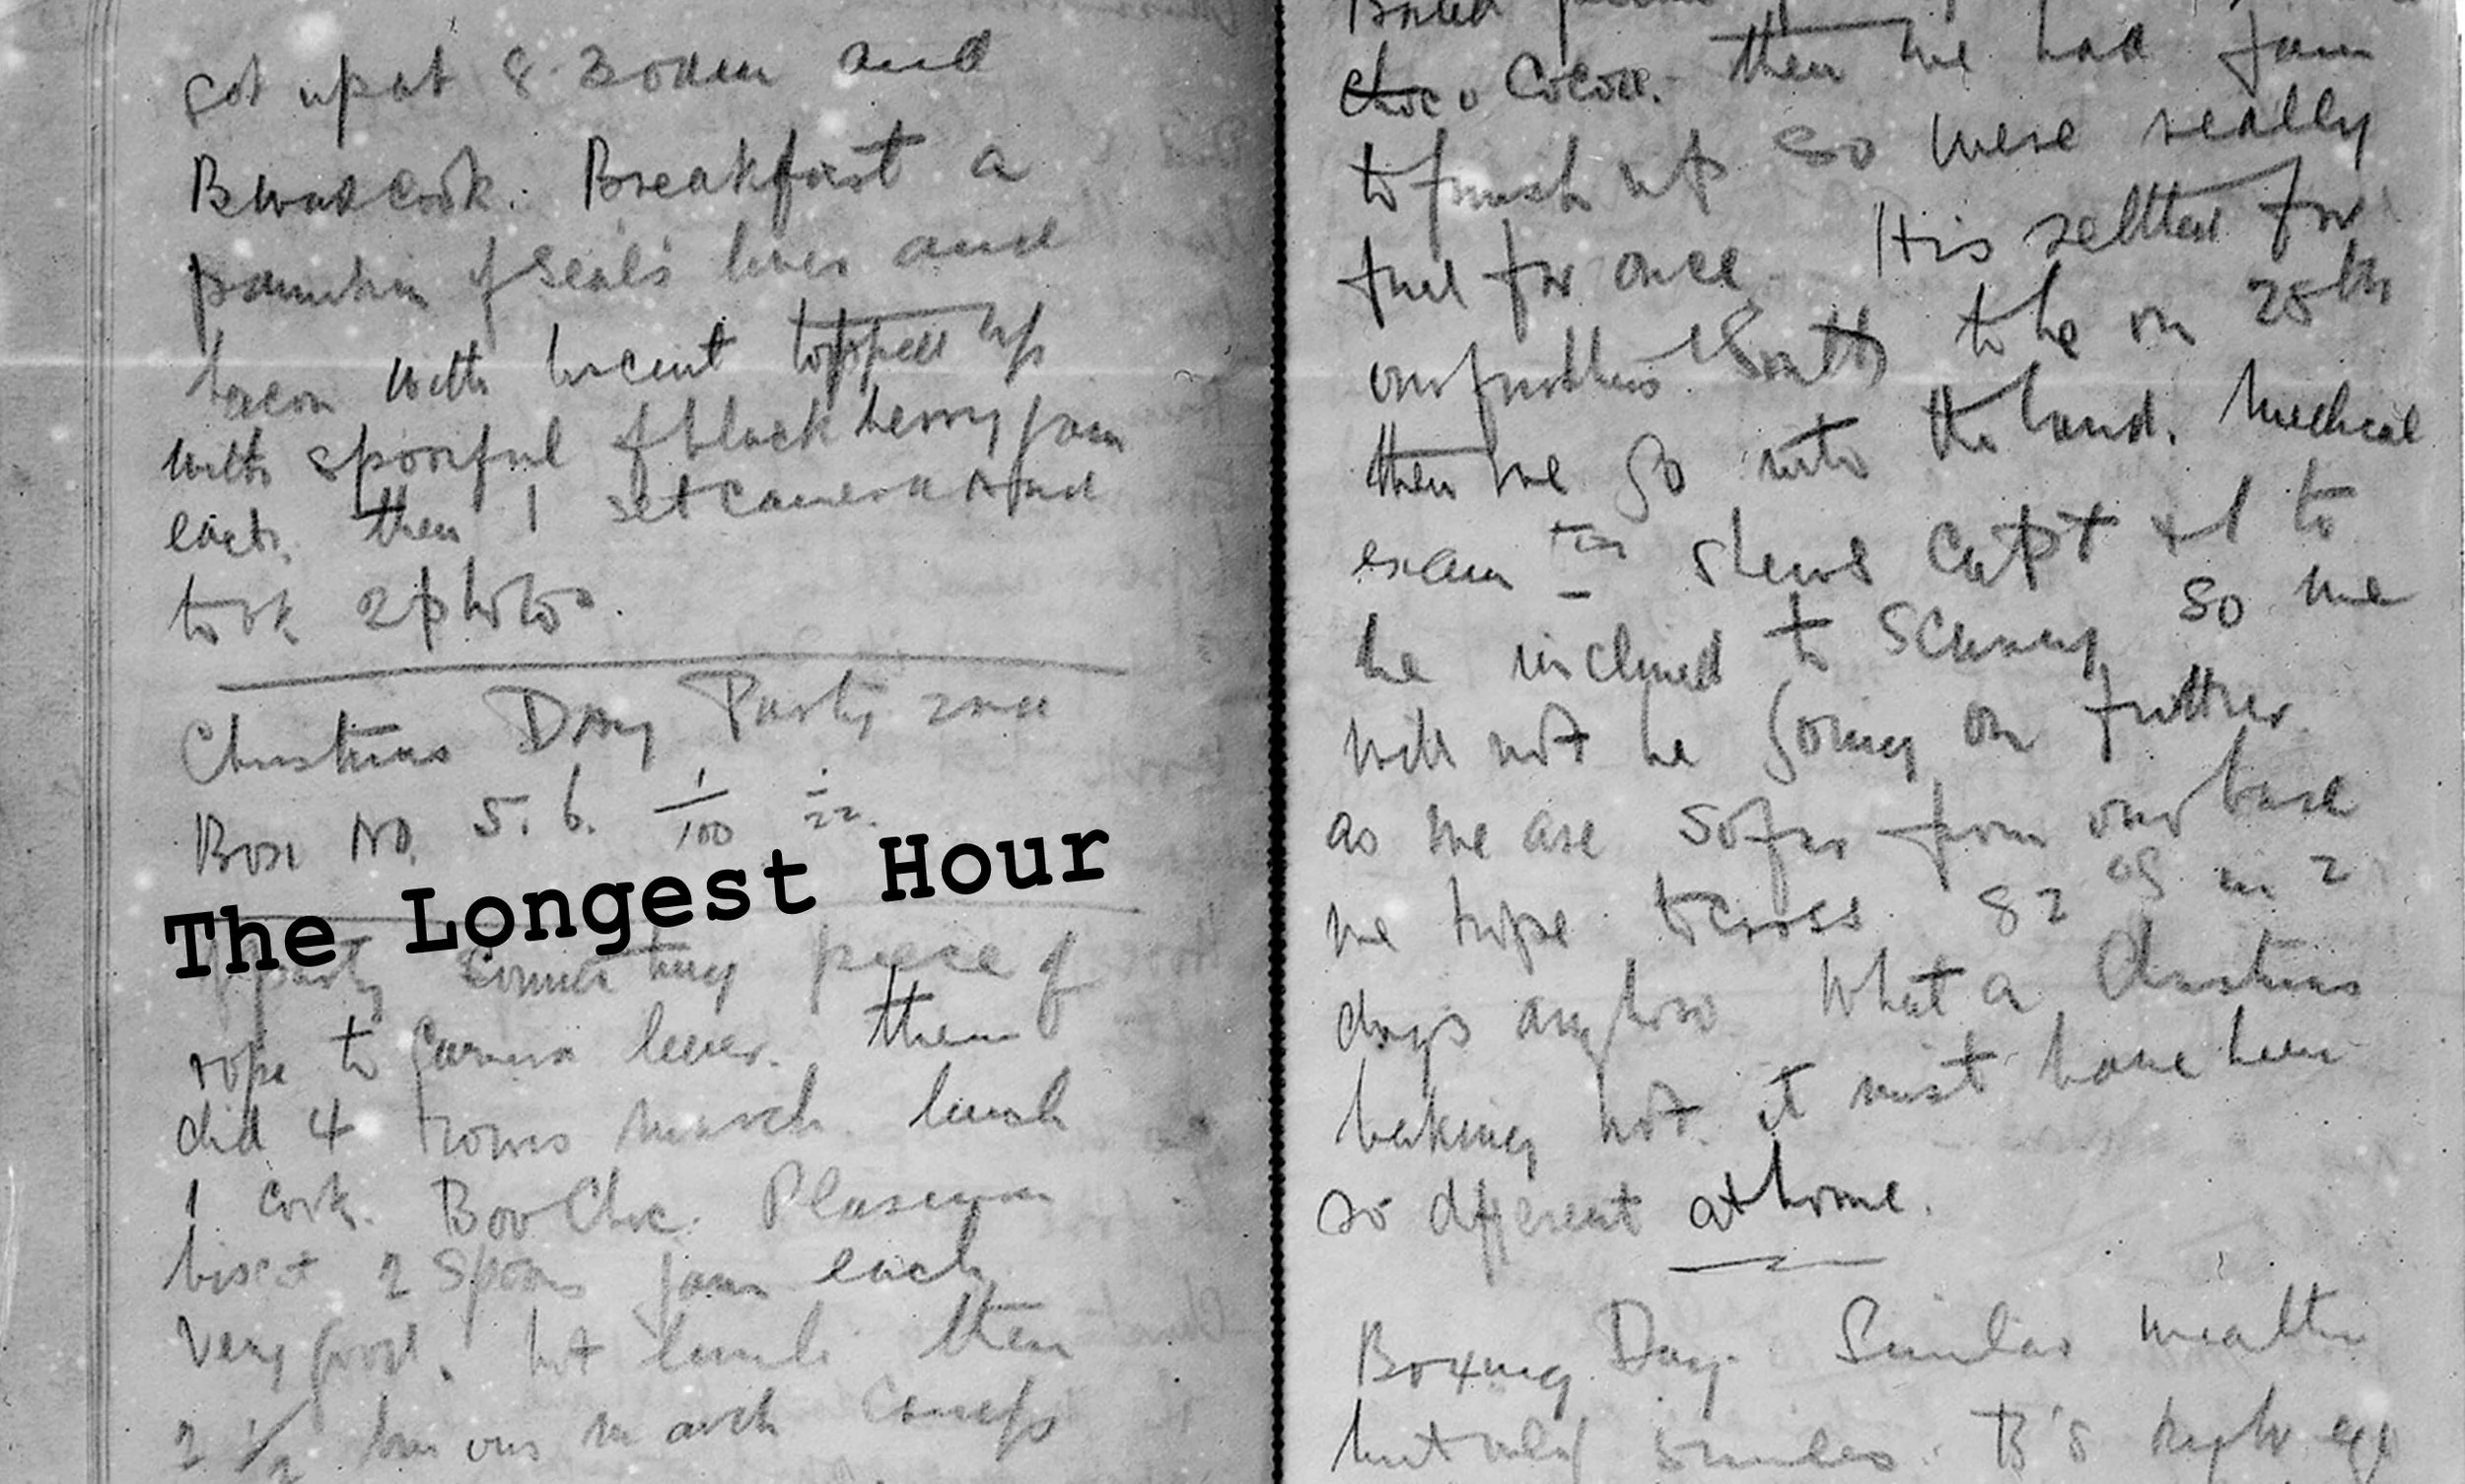 Got up at 8.30am and
B was cook. Breakfast a
pannikin of seal's liver and
bacon with biscuit topped up
with spoonful of blackberry jam
each. then I set camera &
took 2 photos.
Christmas Day Party 2nd
Box No. 5. 6. 1/100 22.
The Longest Hour
of party connecting piece of
rope to camera lever. then
did 4 hours march. lunch
I cook. Bov Choc. Plasmon
bisct 2 spoons jam each
Very good. hot lunch then
2 1/2 hours march camp
choc Cocoa. then we had jam
to finish up so were really
full for once. It is settled for
our furthest South to be on 28th
then we go into the land. Medical
exam shews Capt & I to
be inclined to scurvy so we
will not be going on further
as we are so far from our base
we hope to cross 82 °S in 2
days anyhow What a Christmas
baking hot. it must have been
so different at home.
Boxing Day. Similar weather
but only smiles. B's right eye